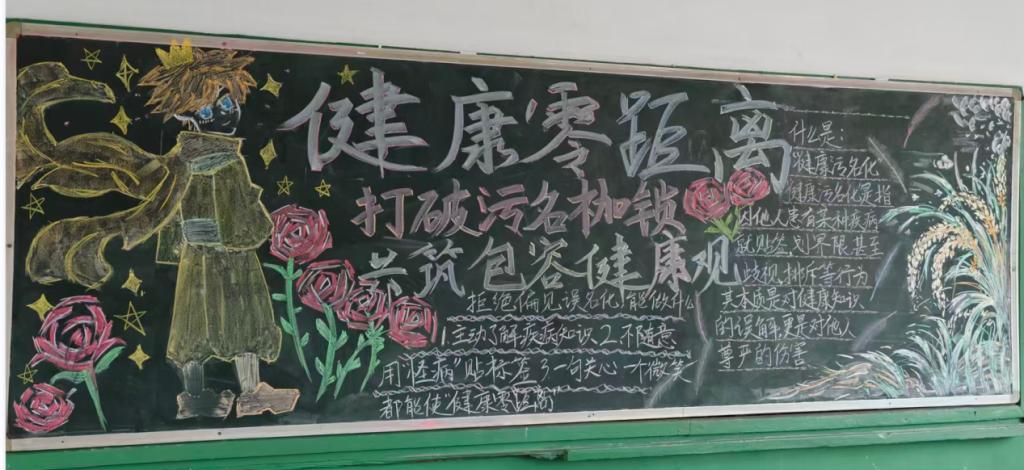 健康零距离
打破污名枷锁
共筑包容健康观
拒绝偏见、误名化,能做什么
1.主动了解疾病知识 2.不随意
用"怪病"贴标签 3一句关心一个微笑
都能使"健康零距离
什么是:
"健康污名化
健康污名化是指
因他人患有某种疾病
就贬然,划界限甚至
歧视、排斥等行为
其本质是对健康知识
的误解更是对他人
尊严的伤害